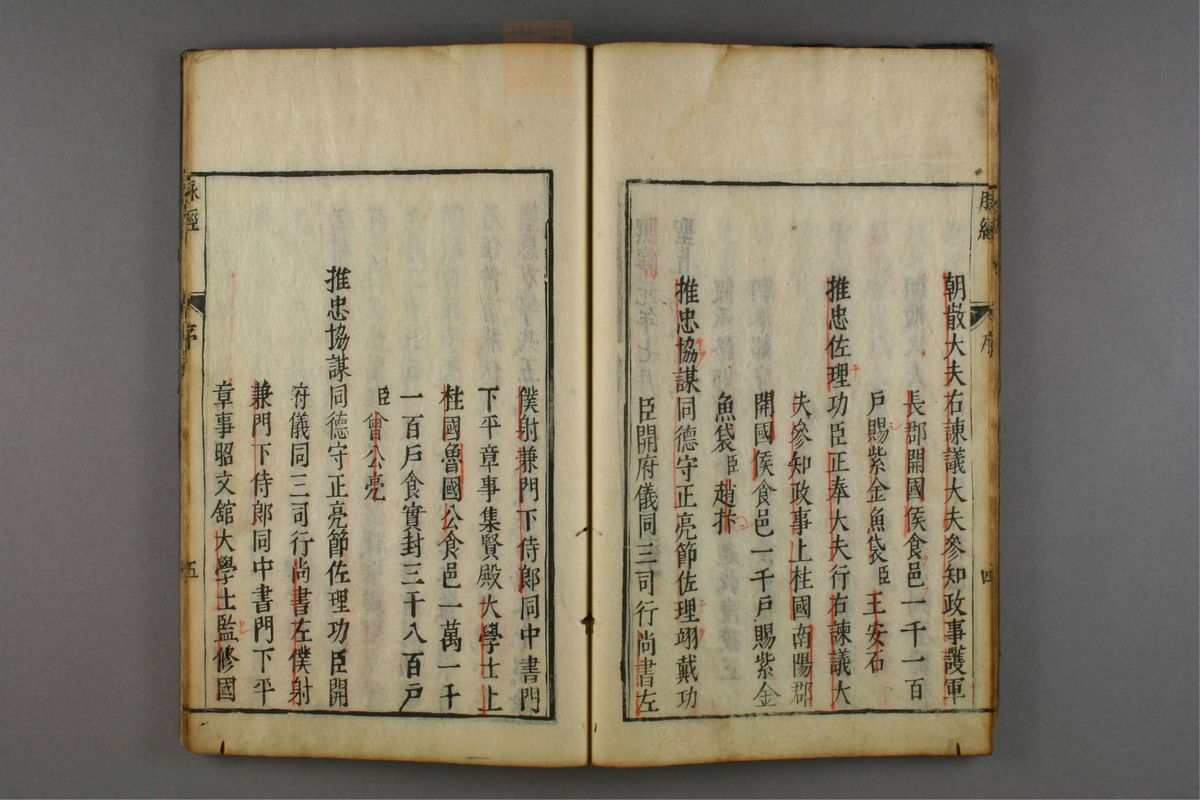 脉經
序
四
朝散大夫右諫議大夫參知政事護軍
長郡開國侯食邑一千一百
戶賜紫金魚袋臣王安石
推忠佐理功臣正奉大夫行右諫議大
夫參知政事上柱國南陽郡
開國侯食邑一千戶賜紫金
魚袋臣趙抃
推忠協謀同德守正亮節佐理翊戴功
臣開府儀同三司行尚書左
僕射兼門下侍郎同中書門
下平章事集賢殿大學士上
柱國魯國公食邑一萬一千
一百戶食實封三千八百戶
臣曾公亮
推忠協謀同德守正亮節佐理功臣開
府儀同三司行尚書左僕射
兼門下侍郎同中書門下平
章事昭文舘大學士監修國
脉經
序
五